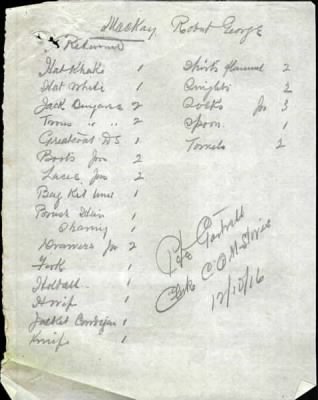 MacKay Robert George
Returned
Hat Khaki 1
Hat White 1
Jack Dungaree 2
Trous " " 2
Greatcoat DS 1
Boots prs 2
Laces prs 2
Bag Kit 1
Brush Hair 1
Shaving 1
Drawers prs 2
Fork 1
Holdall 1
1
Jacket Cardigan 1
Knife 1
Shirts flannel 2
Singlets 2
Socks prs 3
Spoon 1
Towels 2
Pte
Clerk C O M Stores
12/10/16